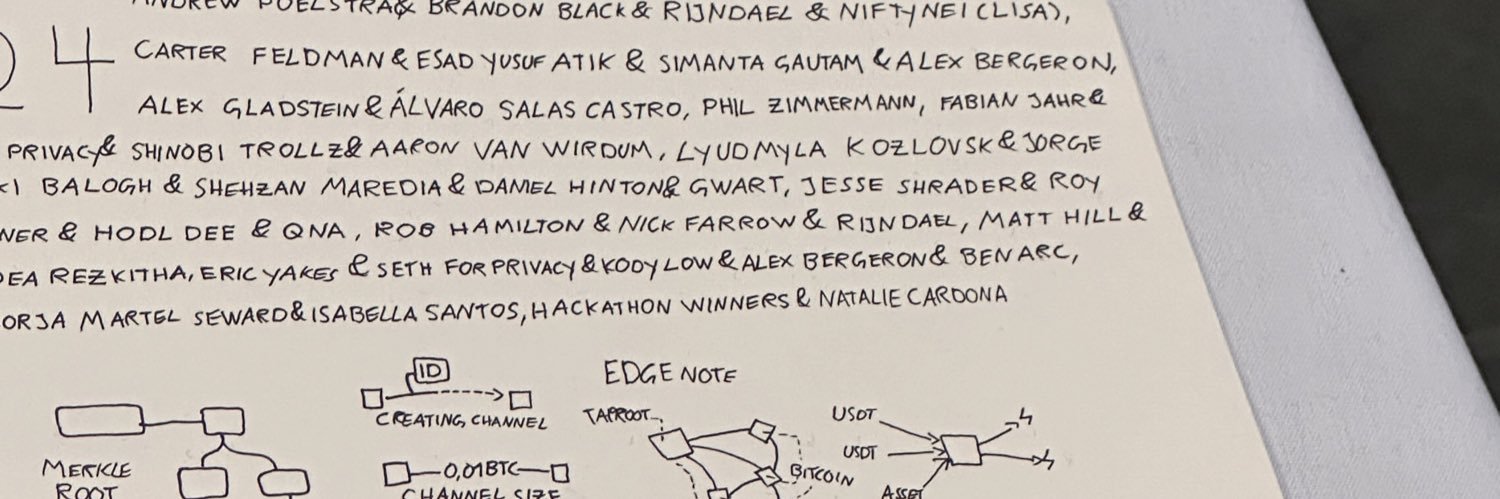 ANDREW POELSTRA & BRANDON BLACK & RIJNDAEL & NIFTYNEI (LISA),
24
CARTER FELDMAN & ESAD YUSUF ATIK & SIMANTA GAUTAM & ALEX BERGERON,
ALEX GLADSTEIN & ÁLVARO SALAS CASTRO, PHIL ZIMMERMANN, FABIAN JAHR &
PRIVACY & SHINOBI TROLLZ & AARON VAN WIRDUM, LYUDMYLA KOZLOVSK & JORGE
KI BALOGH & SHEHZAN MAREDIA & DANIEL HINTON & GWART, JESSE SHRADER & ROY
NER & HODL DEE & QNA, ROB HAMILTON & NICK FARROW & RIJNDAEL, MATT HILL &
DEA REZKITHA, ERIC YAKES & SETH FOR PRIVACY & KODY LOW & ALEX BERGERON & BEN ARC,
ORJA MARTEL SEWARD & ISABELLA SANTOS, HACKATHON WINNERS & NATALIE CARDONA
ID
CREATING CHANNEL
EDGE NOTE
TAPROOT
USDT
USDT
ASSET
BITCOIN
MERKLE
ROOT
0,01 BTC
CHANNEL SIZE